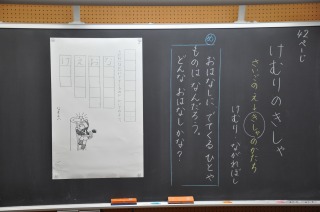 42ページ
けむりのきしゃ
さいごのえ→きしゃのかたち
けむり、ながれぼし
め
おはなしに でてくる ひとや
ものは なんだろう。
どんな おはなしかな？